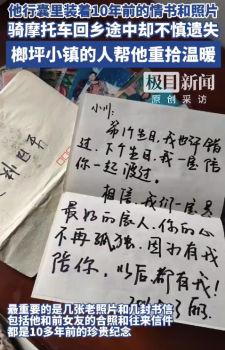 他行囊里装着10年前的情书和照片
骑摩托车回乡途中却不慎遗失
榔坪小镇的人帮他重拾温暖
极目新闻
原创采访
小川:
过,下个生日,我一定陪
你一起渡过。
相信,我们一定是
最好的家人,你的心
不再孤独,因为有我
陪你,以后都有我!
最重要的是几张老照片和几封书信
包括他和前女友的合照和往来信件
都是10多年前的珍贵纪念